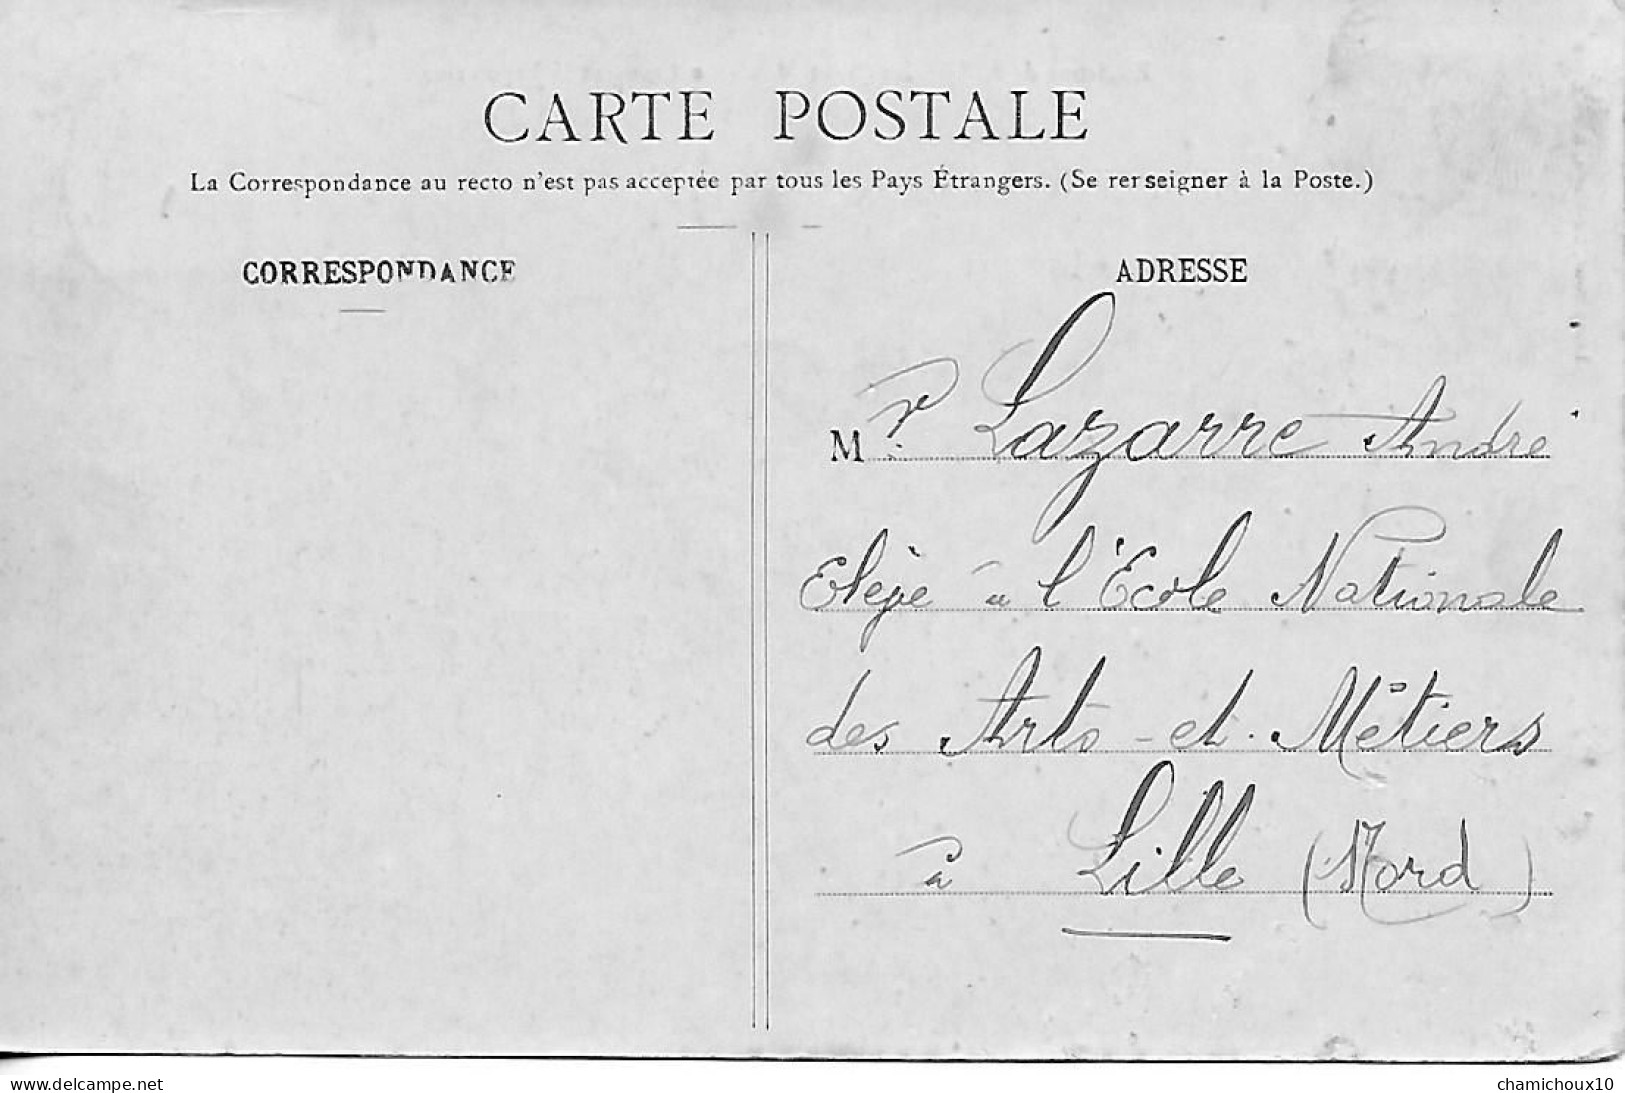 CARTE POSTALE
La Correspondance au recto n'est pas acceptée par tous les Pays Étrangers. (Se renseigner à la Poste.)
CORRESPONDANCE
ADRESSE
Mr. Lazarre André
Elève à l'École Nationale
des Arts et Métiers
à Lille (Nord)
www.delcampe.net
chamichoux10